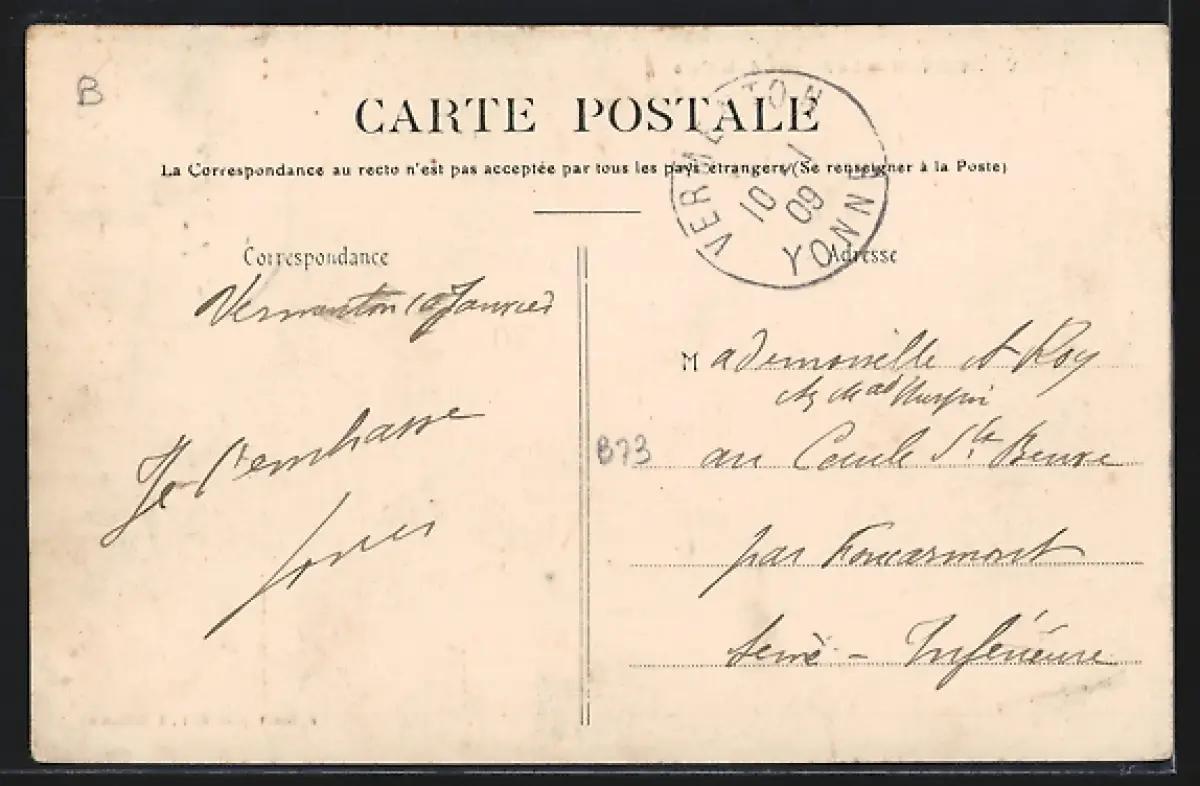 B
CARTE POSTALE
La Correspondance au recto n'est pas acceptée par tous les pays étrangers (Se renseigner à la Poste)
VERMENTON
10 - 1
09
YONNE
Correspondance
Vermenton 10 Janvier
Je t'embrasse
Adresse
Mademoiselle A Roy
873
au Caule Ste Beuve
par Foucarmont
Seine - Inférieure